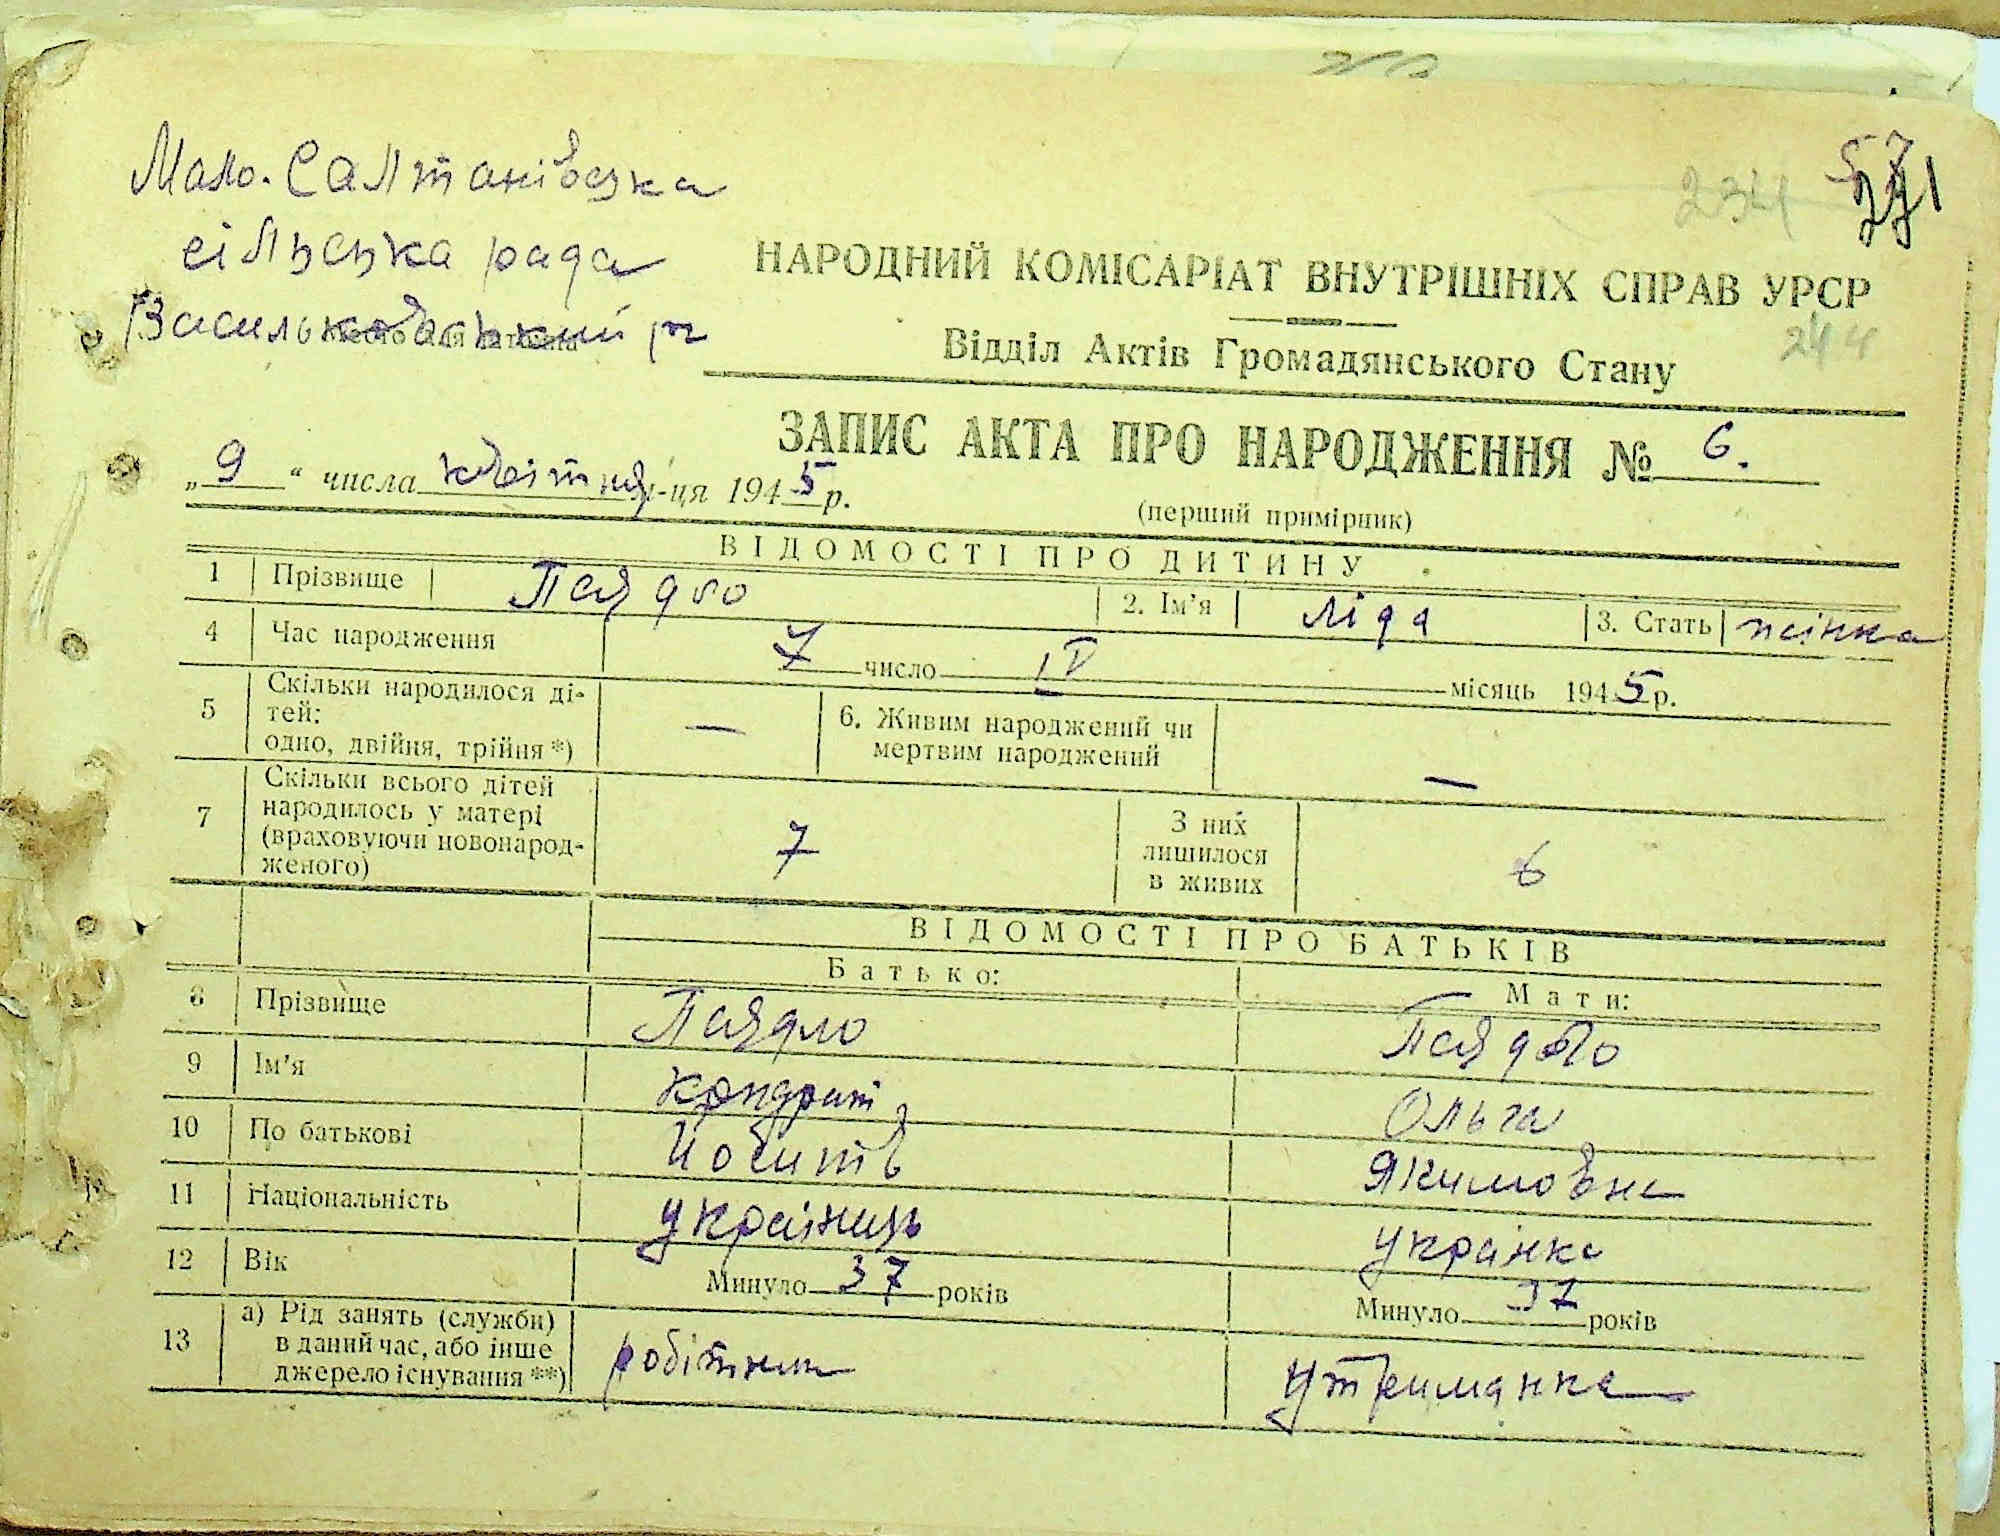 Мало. Салтанівська
сільська рада
Васильковський р-н
271
234
244
НАРОДНИЙ КОМІСАРІАТ ВНУТРІШНІХ СПРАВ УРСР
Відділ Актів Громадянського Стану
ЗАПИС АКТА ПРО НАРОДЖЕННЯ № 6.
„9“ числа квітня м-ця 1945 р.
(перший примірник)
ВІДОМОСТІ ПРО ДИТИНУ
1 Прізвище 2. Ім'я Ліда 3. Стать жінка
4 Час народження 7 число IV місяць 1945 р.
5 Скільки народилося ді-
тей:
одно, двійня, трійня *) — 6. Живим народжений чи
мертвим народжений —
7 Скільки всього дітей
народилось у матері
(враховуючи новонарод-
женого) 7 З них
лишилося
в живих 6
ВІДОМОСТІ ПРО БАТЬКІВ
Батько: Мати:
8 Прізвище
9 Ім'я Кондрат Ольга
10 По батькові Якимовна
11 Національність українець українка
12 Вік Минуло 37 років Минуло 37 років
13 а) Рід занять (служби)
в даний час, або інше
джерело існування **) робітник утриманка